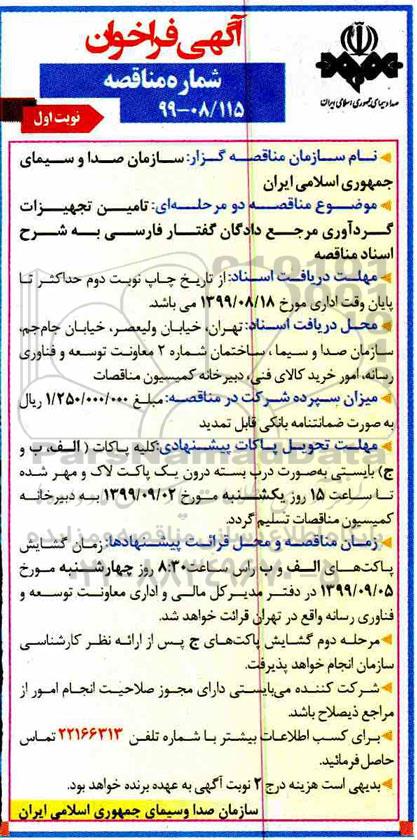 آگهی فراخوان
شماره مناقصه
۹۹-۰۸/۱۱۵
نوبت اول
صدا و سیمای جمهوری اسلامی ایران
نام سازمان مناقصه گزار: سازمان صدا و سیمای
جمهوری اسلامی ایران
موضوع مناقصه دو مرحله‌ای: تامین تجهیزات
گردآوری مرجع دادگان گفتار فارسی به شرح
اسناد مناقصه
مهلت دریافت اسناد: از تاریخ چاپ نوبت دوم حداکثر تا
پایان وقت اداری مورخ ۱۳۹۹/۰۸/۱۸ می باشد.
محل دریافت اسناد: تهران، خیابان ولیعصر، خیابان جام‌جم،
سازمان صدا و سیما ، ساختمان شماره ۲ معاونت توسعه و فناوری
رسانه، امور خرید کالای فنی، دبیرخانه کمیسیون مناقصات
میزان سپرده شرکت در مناقصه: مبلغ ۱/۲۵۰/۰۰۰/۰۰۰ ریال
به صورت ضمانتنامه بانکی قابل تمدید
مهلت تحویل پاکات پیشنهادی: کلیه پاکات ( الف، ب و
ج) بایستی به‌صورت درب بسته درون یک پاکت لاک و مهر شده
تا ساعت ۱۵ روز یکشنبه مورخ ۱۳۹۹/۰۹/۰۲ به دبیرخانه
کمیسیون مناقصات تسلیم گردد.
زمان مناقصه و محل قرائت پیشنهادها: زمان گشایش
پاکت‌های الف و ب راس ساعت ۸:۳۰ روز چهارشنبه مورخ
۱۳۹۹/۰۹/۰۵ در دفتر مدیرکل مالی و اداری معاونت توسعه و
فناوری رسانه واقع در تهران قرائت خواهد شد.
مرحله دوم گشایش پاکت‌های ج پس از ارائه نظر کارشناسی
سازمان انجام خواهد پذیرفت.
شرکت کننده می‌بایستی دارای مجوز صلاحیت انجام امور از
مراجع ذیصلاح باشد.
برای کسب اطلاعات بیشتر با شماره تلفن ۲۲۱۶۶۳۱۳ تماس
حاصل فرمائید.
بدیهی است هزینه درج ۲ نوبت آگهی به عهده برنده خواهد بود.
سازمان صدا وسیمای جمهوری اسلامی ایران